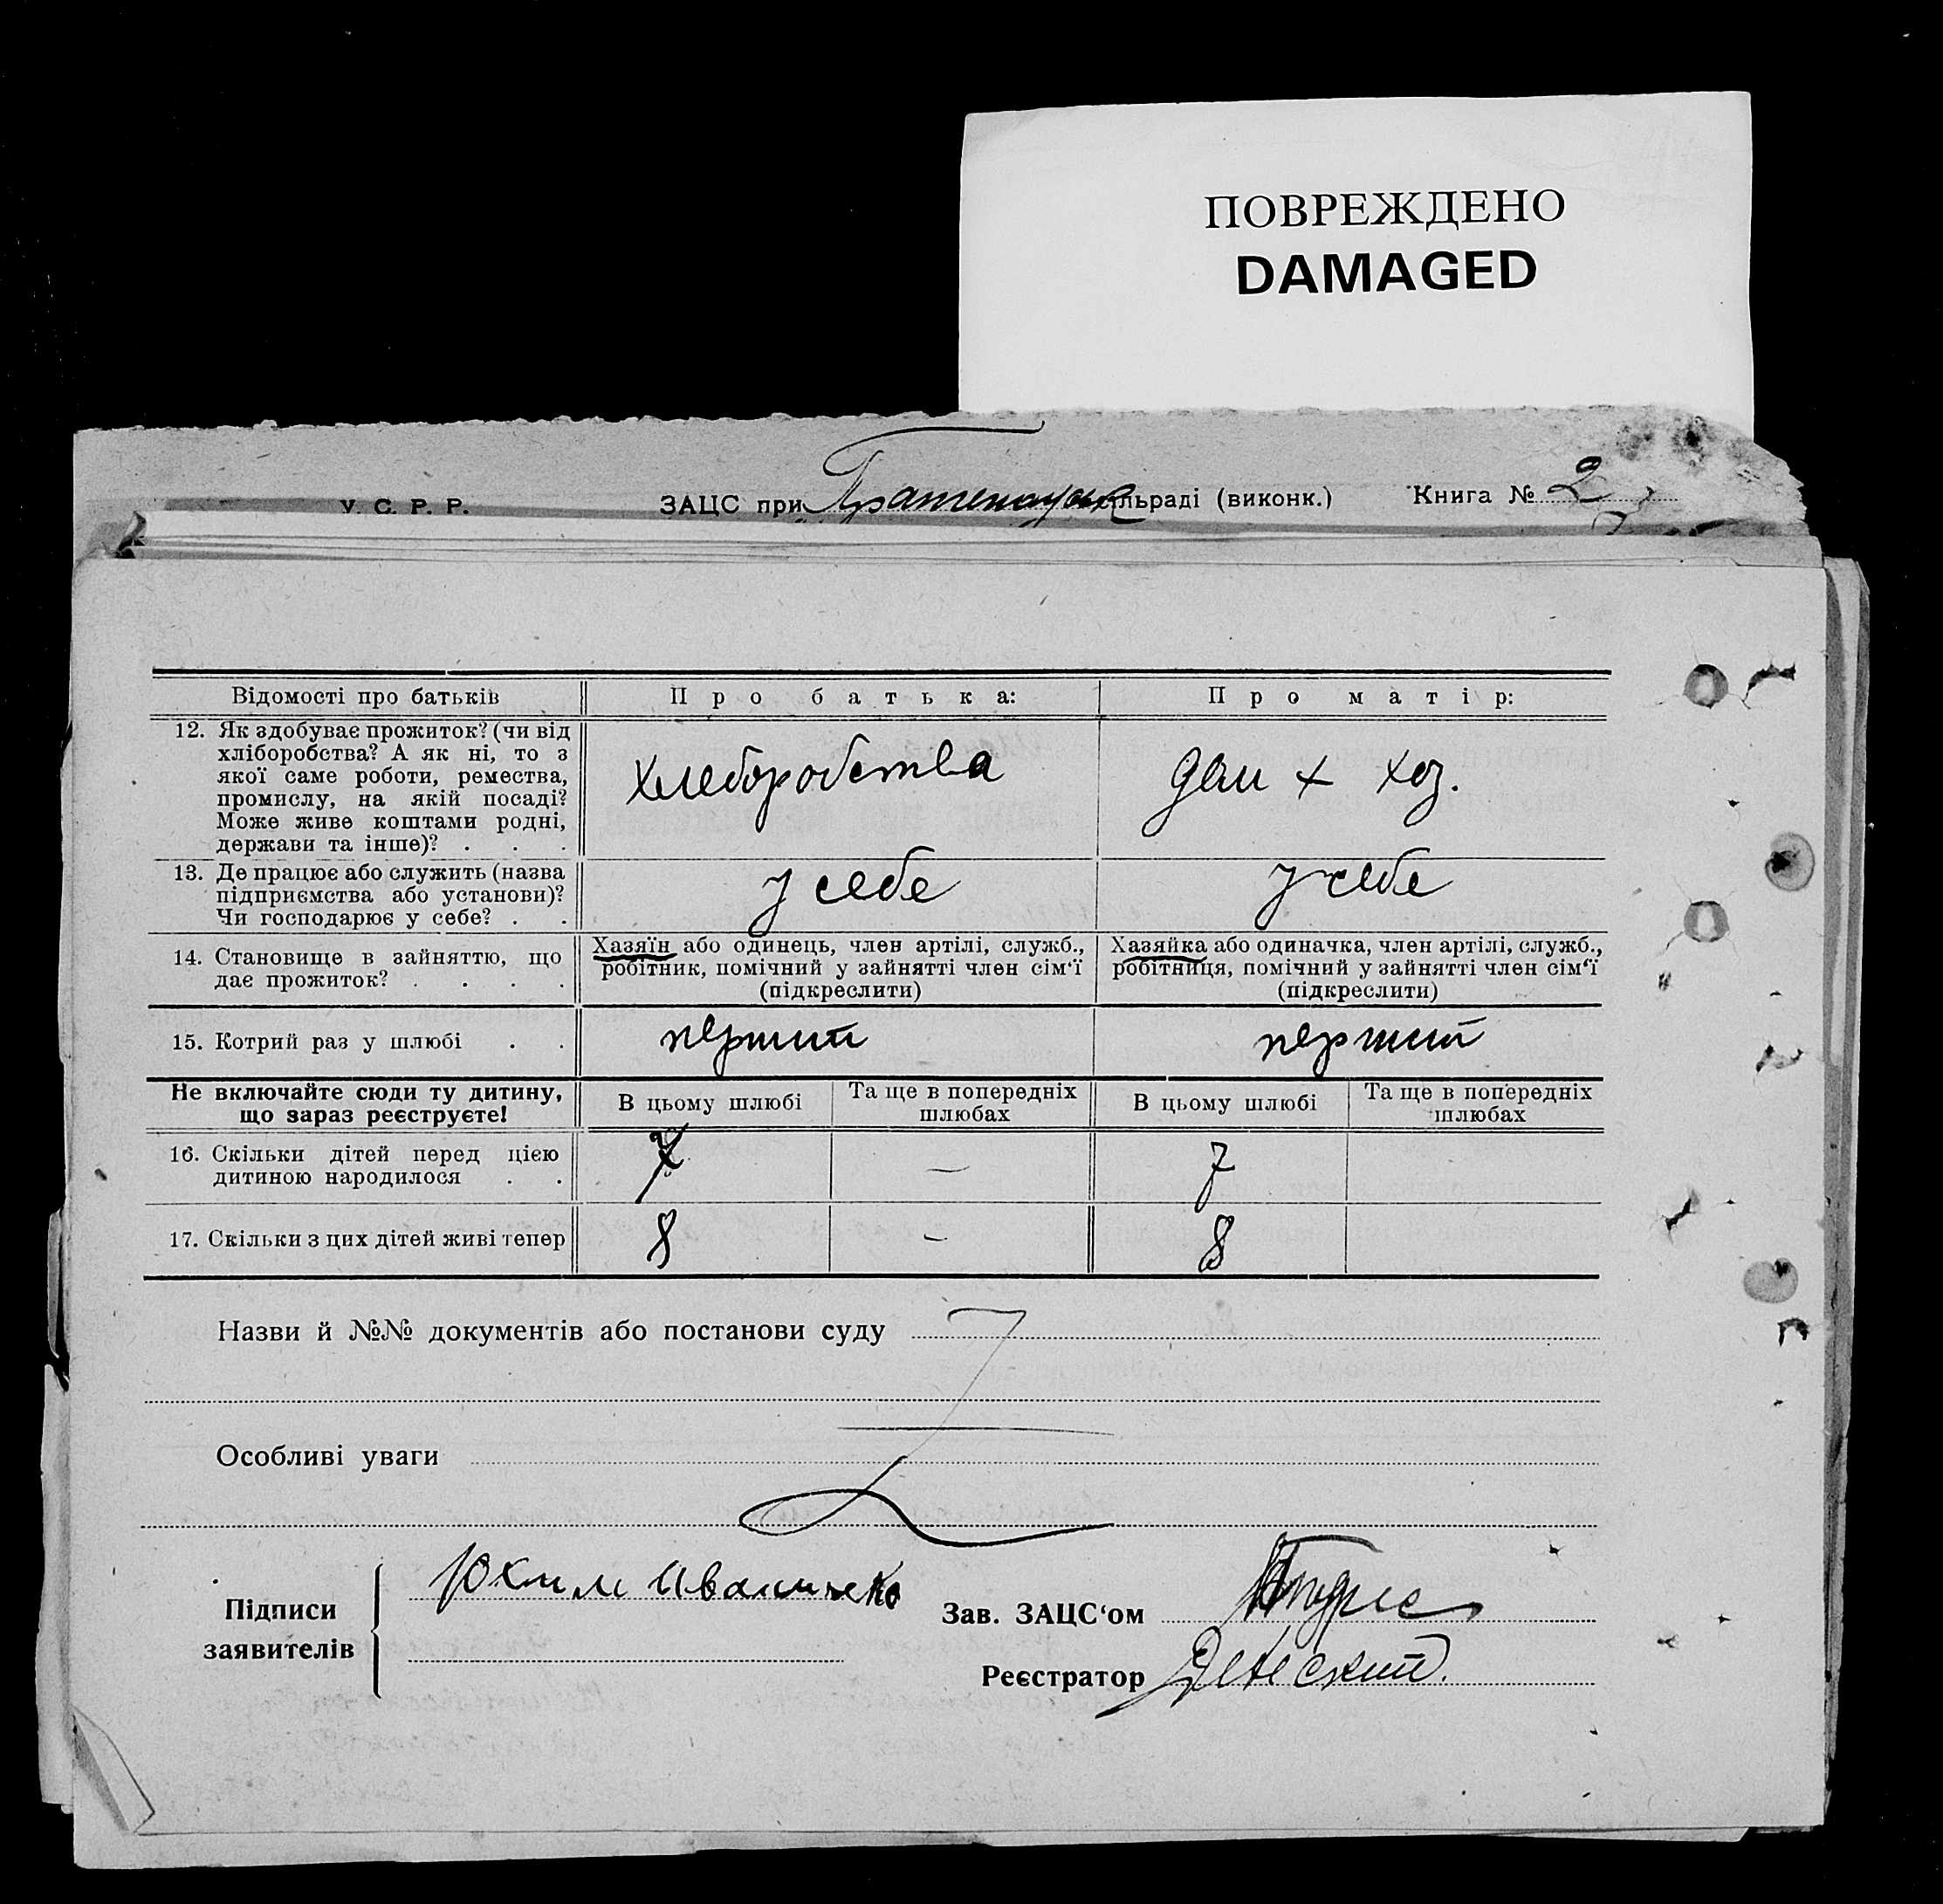 ПОВРЕЖДЕНО
DAMAGED
У. С. Р. Р. ЗАЦС при сільраді (виконк.) Книга № 2
Відомості про батьків
Про батька:
Про матір:
12. Як здобуває прожиток? (чи від
хліборобства? А як ні, то з
якої саме роботи, ремества,
промислу, на якій посаді?
Може живе коштами родні,
держави та інше)? . . .
хлеборобства
дом х хоз.
13. Де працює або служить (назва
підприємства або установи)?
Чи господарює у себе? . .
у себе
у себе
14. Становище в зайняттю, що
дає прожиток? . . . .
Хазяїн або одинець, член артілі, служб.,
робітник, помічний у зайнятті член сім'ї
(підкреслити)
Хазяйка або одиначка, член артілі, служб.,
робітниця, помічний у зайнятті член сім'ї
(підкреслити)
15. Котрий раз у шлюбі . .
перший
перший
Не включайте сюди ту дитину,
що зараз реєструєте!
В цьому шлюбі
Та ще в попередніх
шлюбах
В цьому шлюбі
Та ще в попередніх
шлюбах
16. Скільки дітей перед цією
дитиною народилося . .
7
—
7
17. Скільки з цих дітей живі тепер
8
—
8
Назви й №№ документів або постанови суду
Особливі уваги
Підписи
заявителів
Юхим Иваненко
Зав. ЗАЦС'ом
Реєстратор